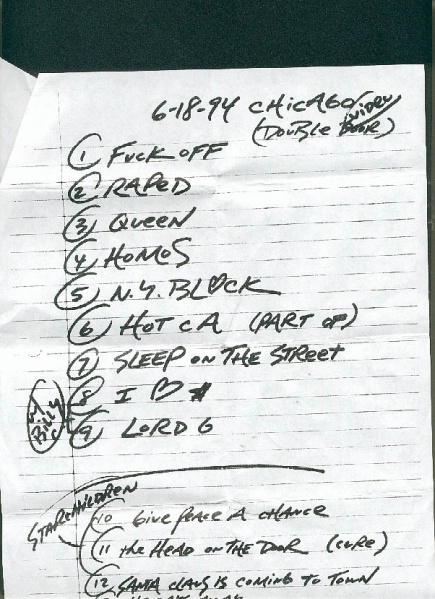 6-18-94 CHICAGO/VIDEO
(DOUBLE DOOR)
1 FUCK OFF
2 RAPED
3 QUEEN
4 HOMOS
5 N.Y. BL♡CK
6 HOT CA (PART OF)
7 SLEEP ON THE STREET
8 I ♡ #
9 LORD G
w/ BILLY C
STARCHILDREN
10 Give Peace A CHANCE
11 the HEAD ON THE DOOR (CURE)
12 SANTA CLAUS IS COMING TO TOWN